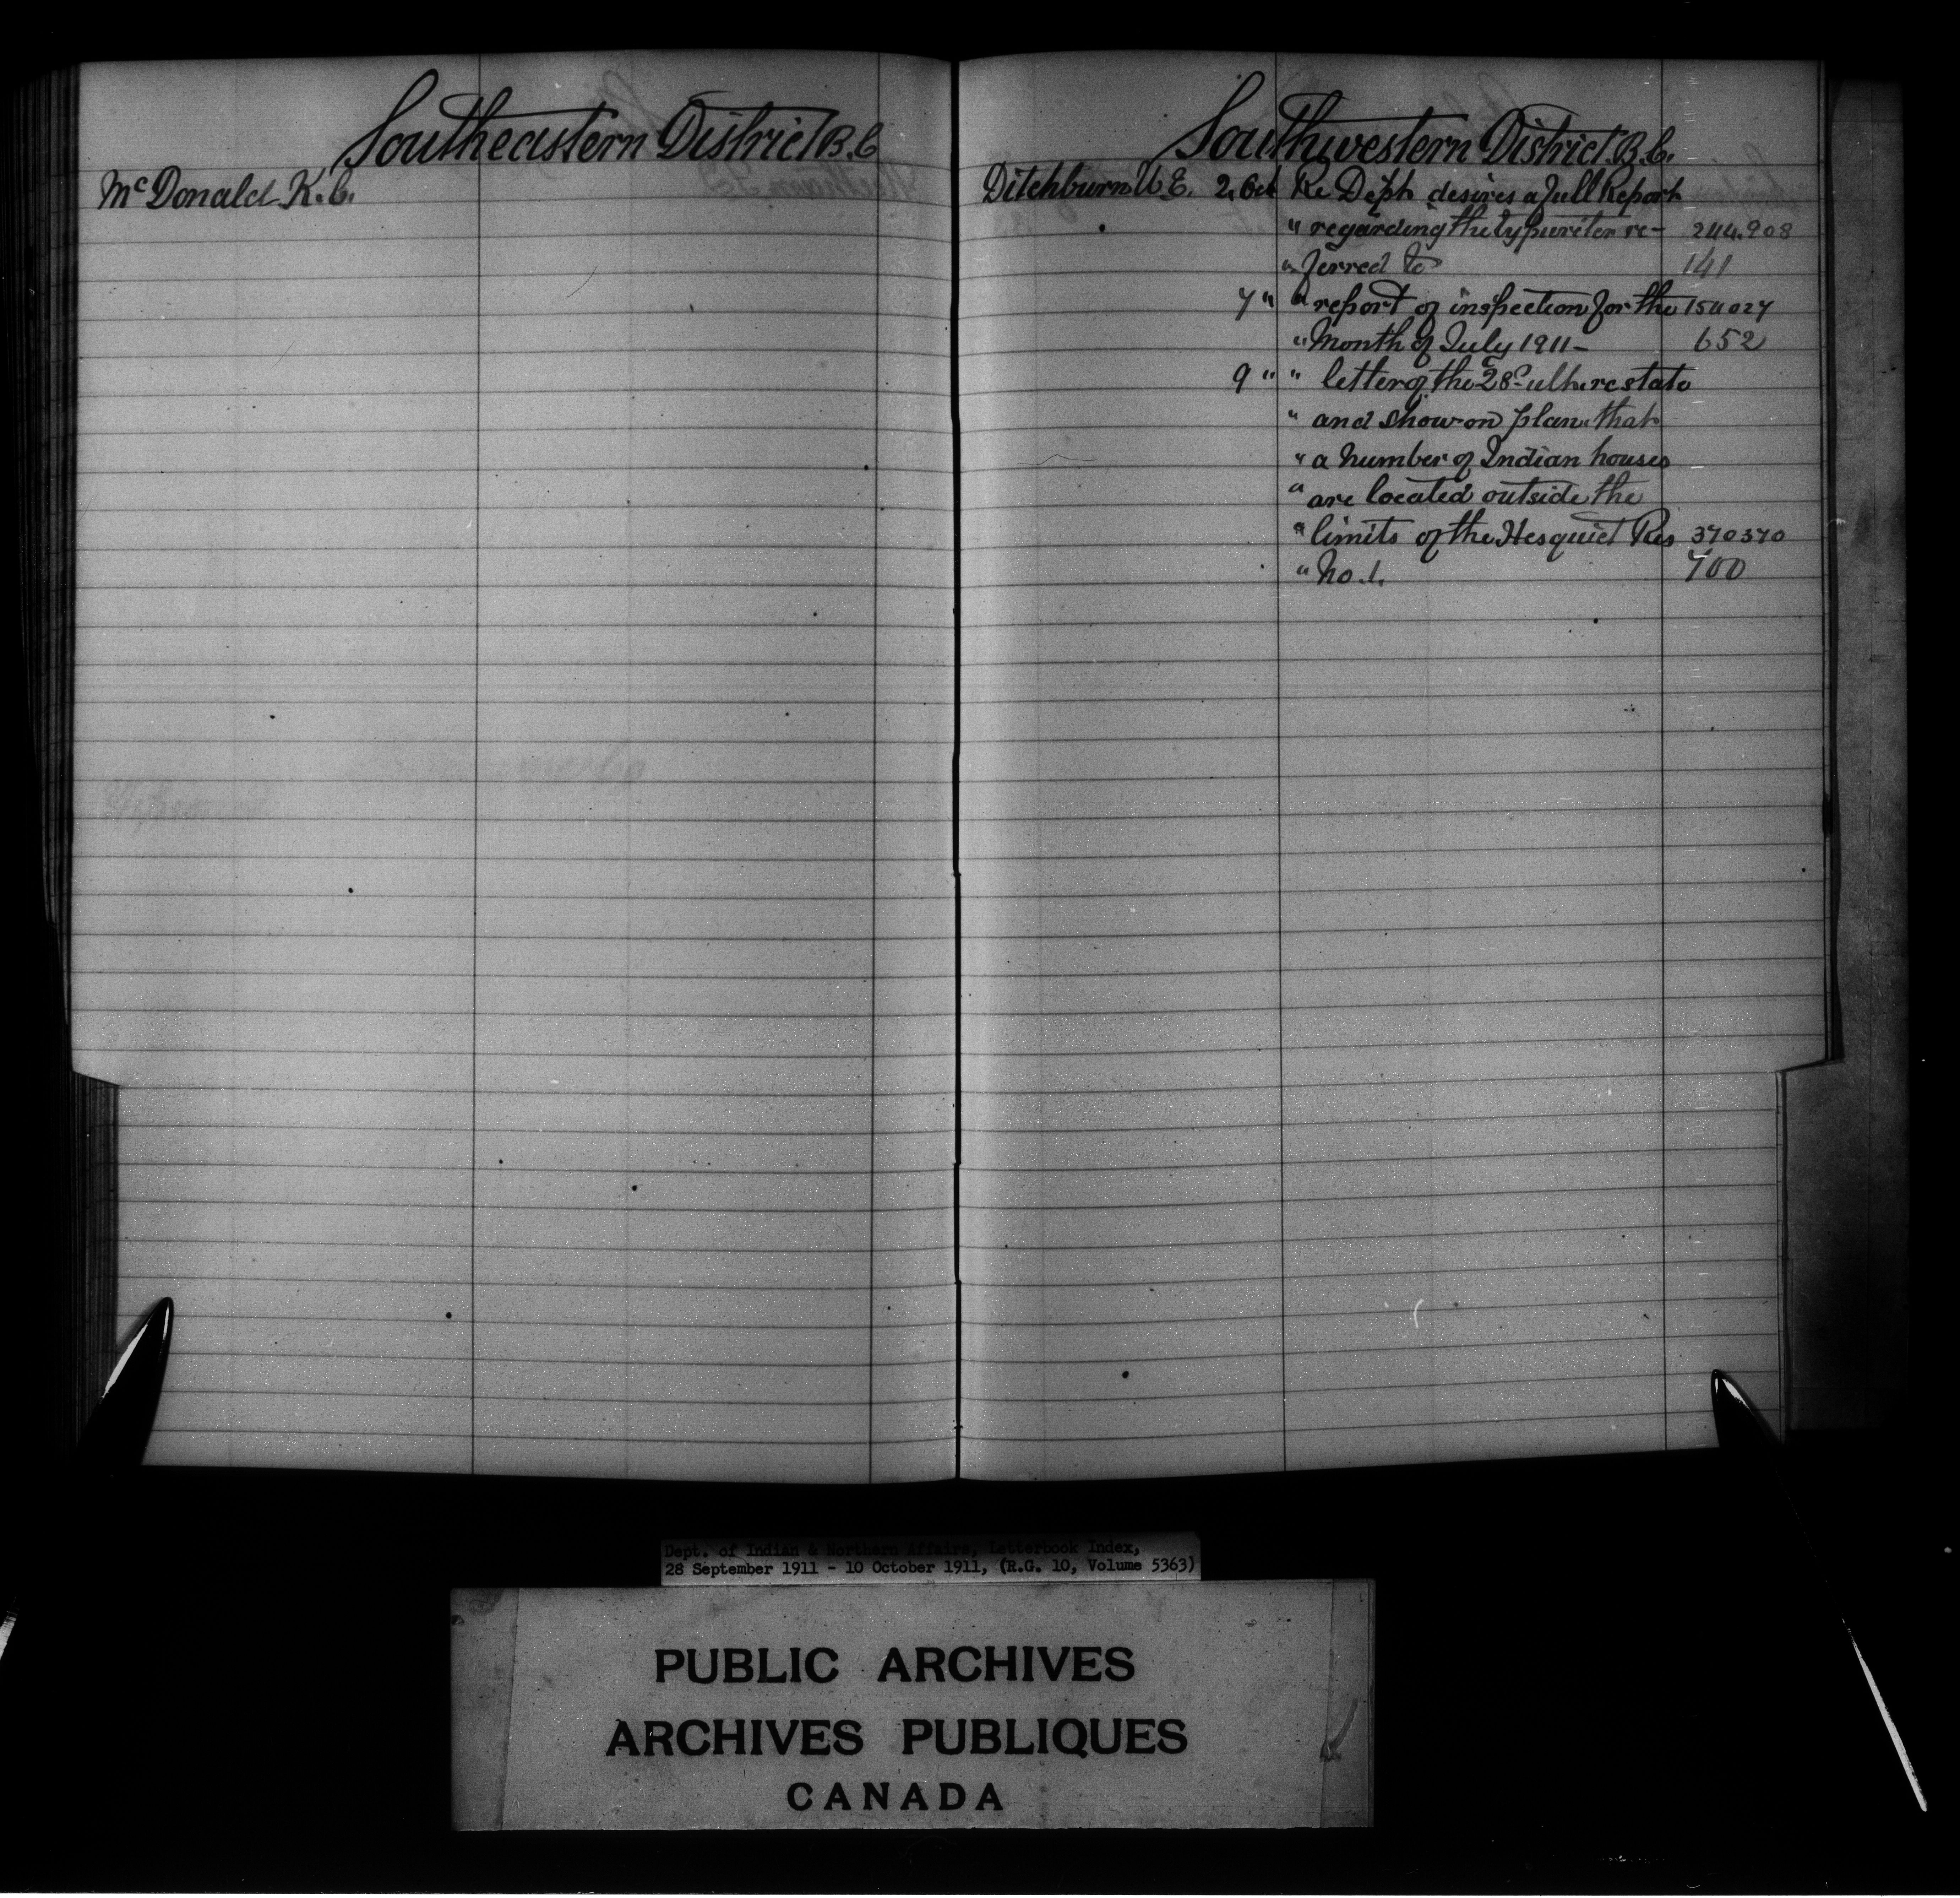 Southeastern District B.C
McDonald K.C.
Southwestern District B.C.
Ditchburn W.E. 2 Oct Re Dept desires a full Report
" regarding the typewriter re- 244.908
" ferred to 141
7 " " report of inspection for the 154027
" Month of July 1911- 652
9 " " letter of the 28 ult. re state
" and show on plan that
" a number of Indian houses
" are located outside the
" limits of the Hesquiet Res 370370
" No. 1. 700
Dept. of Indian & Northern Affairs, Letterbook Index,
28 September 1911 - 10 October 1911, (R.G. 10, Volume 5363)
PUBLIC ARCHIVES
ARCHIVES PUBLIQUES
CANADA